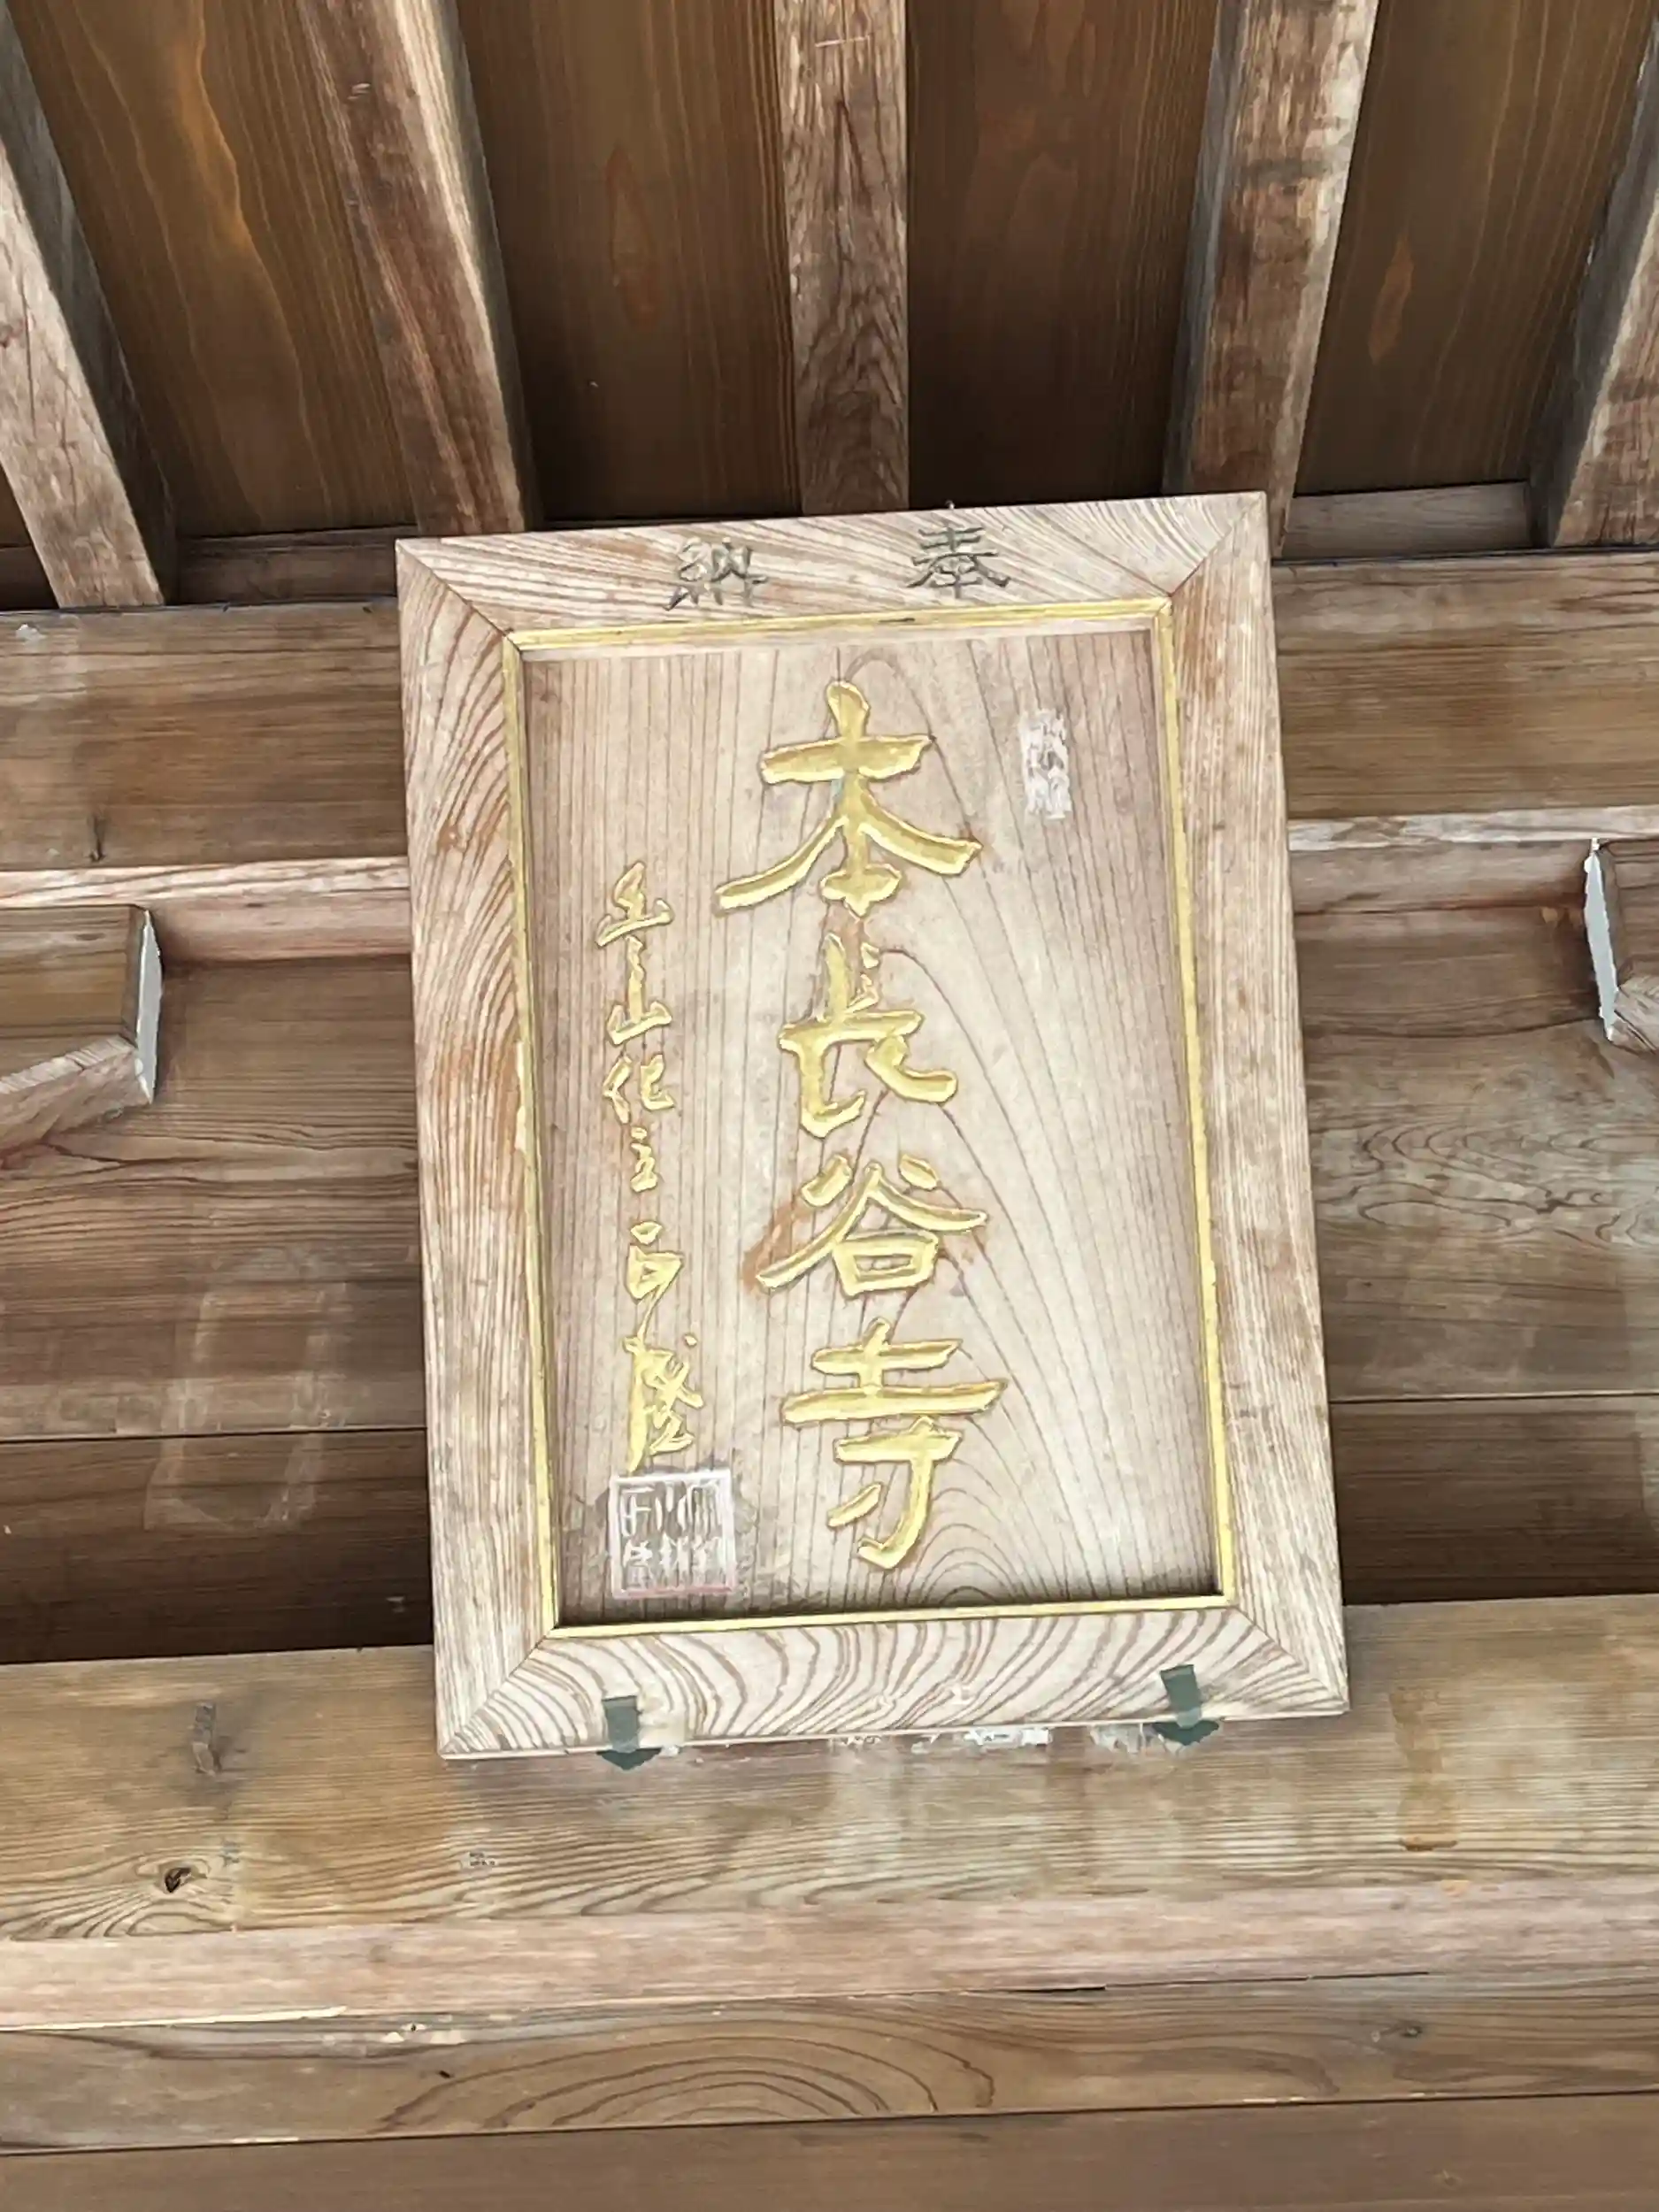 奉納
本長谷寺
豊山化主